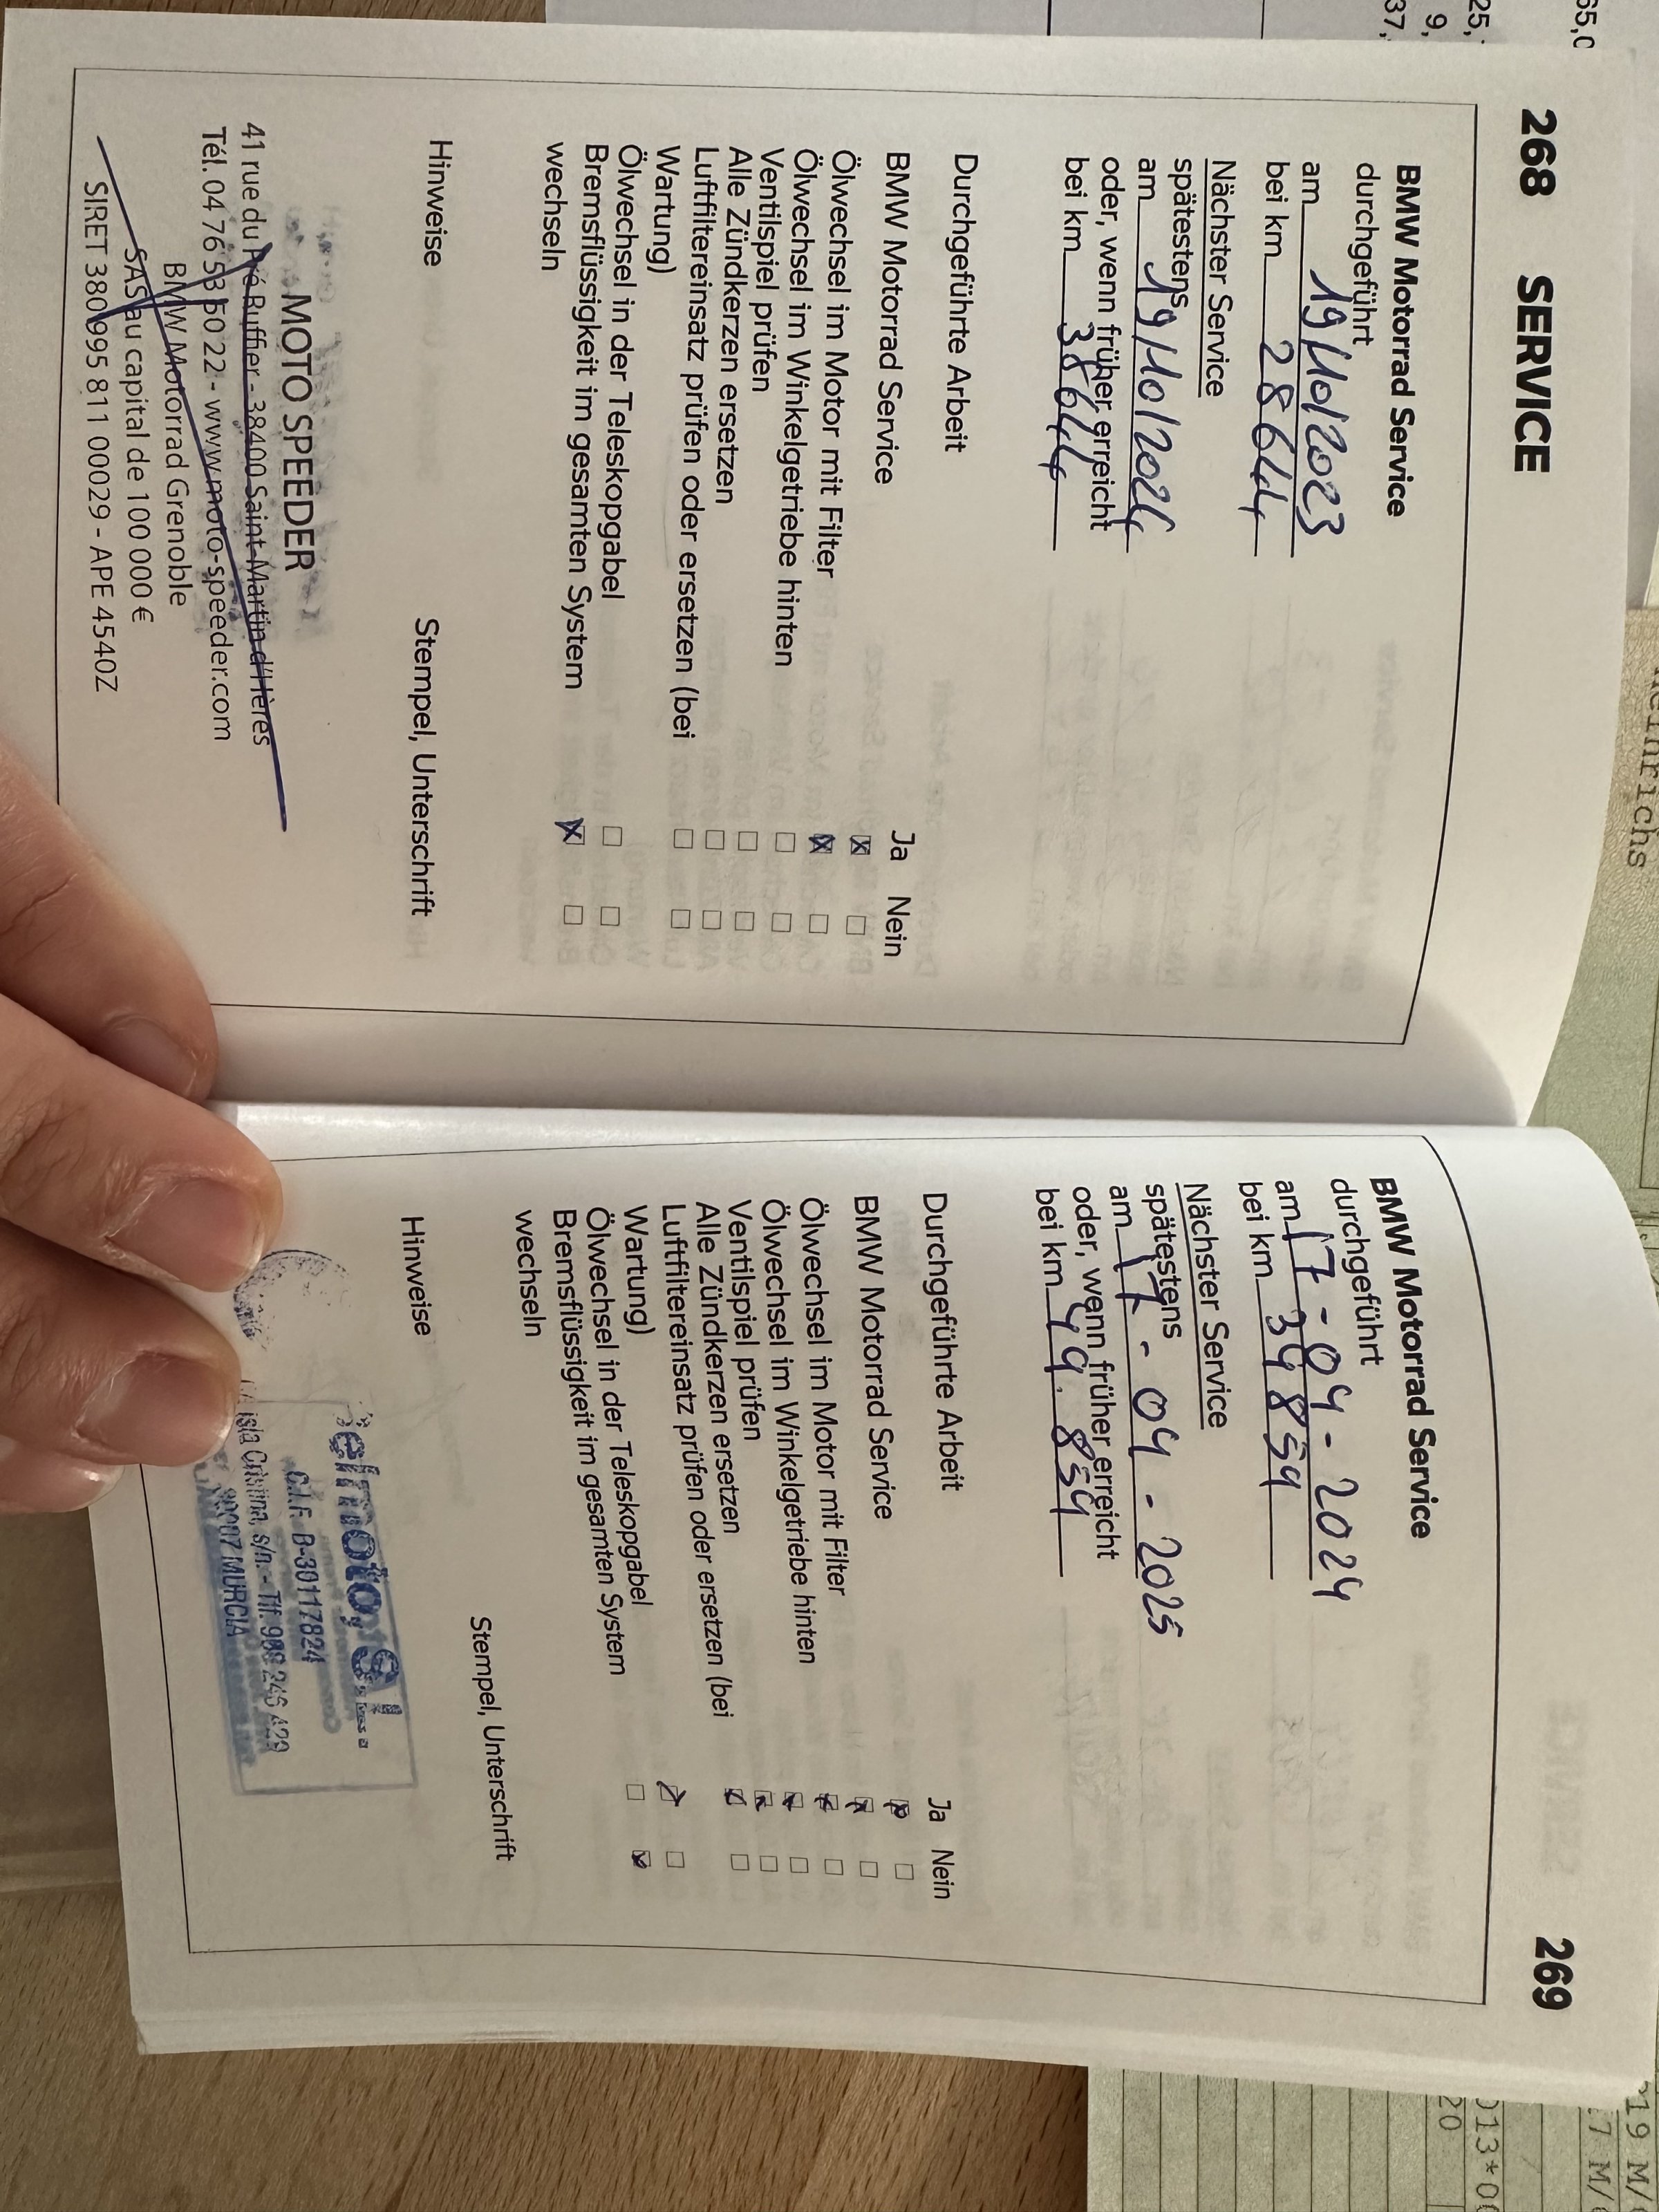 268 SERVICE
BMW Motorrad Service
durchgeführt
am 19/10/2023
bei km 28644
Nächster Service
spätestens
am 19/10/2024
oder, wenn früher erreicht
bei km 38644
Durchgeführte Arbeit
Ja Nein
BMW Motorrad Service
Ölwechsel im Motor mit Filter
Ölwechsel im Winkelgetriebe hinten
Ventilspiel prüfen
Alle Zündkerzen ersetzen
Luftfiltereinsatz prüfen oder ersetzen (bei
Wartung)
Ölwechsel in der Teleskopgabel
Bremsflüssigkeit im gesamten System
wechseln
Hinweise
Stempel, Unterschrift
MOTO SPEEDER
41 rue du Pré Ruffier - 38400 Saint-Martin-d'Hères
Tél. 04 76 53 50 22 - www.moto-speeder.com
BMW Motorrad Grenoble
SAS au capital de 100 000 €
SIRET 380 995 811 00029 - APE 4540Z
269
BMW Motorrad Service
durchgeführt
am 17-04-2024
bei km 39854
Nächster Service
spätestens
am 17-04-2025
oder, wenn früher erreicht
bei km 49.854
Durchgeführte Arbeit
Ja Nein
BMW Motorrad Service
Ölwechsel im Motor mit Filter
Ölwechsel im Winkelgetriebe hinten
Ventilspiel prüfen
Alle Zündkerzen ersetzen
Luftfiltereinsatz prüfen oder ersetzen (bei
Wartung)
Ölwechsel in der Teleskopgabel
Bremsflüssigkeit im gesamten System
wechseln
Hinweise
Stempel, Unterschrift
C.I.F. B-30117824
Cristina, s/n. - Tlf. 968 246 429
30007 MURCIA
65,0
25,
9,
37,
einrichs
19 M/
7 M/
013*0
20